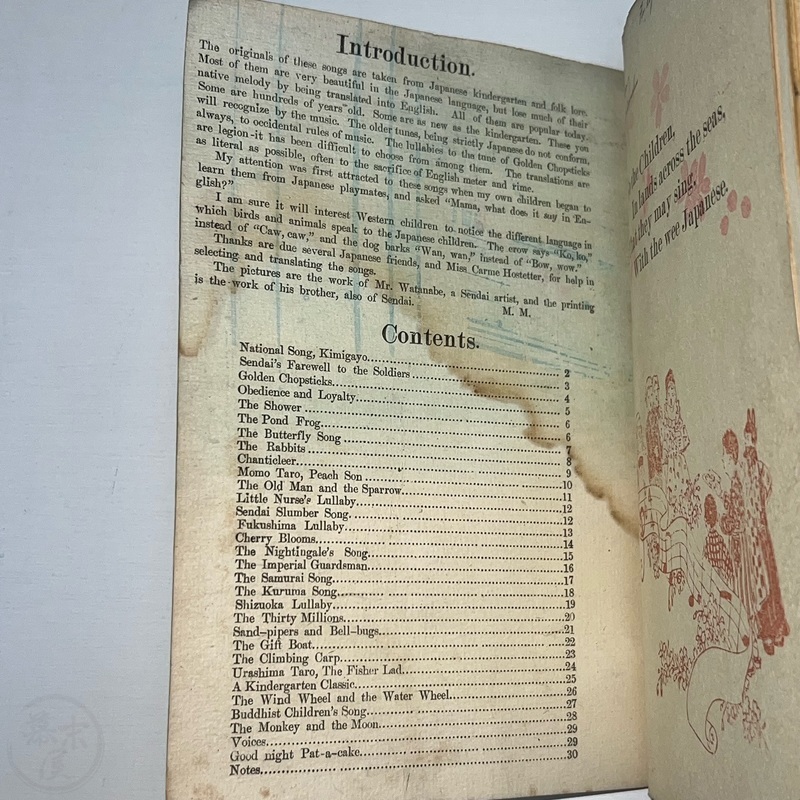 Introduction.
The originals of these songs are taken from Japanese kindergarten and folk lore.
Most of them are very beautiful in the Japanese language, but lose much of their
native melody by being translated into English. All of them are popular today.
Some are hundreds of years old. Some are as new as the kindergarten. These you
will recognize by the music. The older tunes, being strictly Japanese do not conform,
always, to occidental rules of music. The lullabies to the tune of Golden Chopsticks
are legion-it has been difficult to choose from among them. The translations are
as literal as possible, often to the sacrifice of English meter and rime.
My attention was first attracted to these songs when my own children began to
learn them from Japanese playmates, and asked "Mama, what does it say in En-
glish?"
I am sure it will interest Western children to notice the different language in
which birds and animals speak to the Japanese children. The crow says "Ko, ko,"
instead of "Caw, caw," and the dog barks "Wan, wan," instead of "Bow, wow."
Thanks are due several Japanese friends, and Miss Carme Hostetter, for help in
selecting and translating the songs.
The pictures are the work of Mr. Watanabe, a Sendai artist, and the printing
is the work of his brother, also of Sendai.
M. M.
Contents.
National Song, Kimigayo 2
Sendai's Farewell to the Soldiers 3
Golden Chopsticks 4
Obedience and Loyalty 5
The Shower 6
The Pond Frog 6
The Butterfly Song 7
The Rabbits 8
Chanticleer 9
Momo Taro, Peach Son 10
The Old Man and the Sparrow 11
Little Nurse's Lullaby 12
Sendai Slumber Song 12
Fukushima Lullaby 13
Cherry Blooms 14
The Nightingale's Song 15
The Imperial Guardsman 16
The Samurai Song 17
The Kuruma Song 18
Shizuoka Lullaby 19
The Thirty Millions 20
Sand-pipers and Bell-bugs 21
The Gift Boat 22
The Climbing Carp 23
Urashima Taro, The Fisher Lad 24
A Kindergarten Classic 25
The Wind Wheel and the Water Wheel 26
Buddhist Children's Song 27
The Monkey and the Moon 28
Voices 29
Good night Pat-a-cake 29
Notes 30
Children,
In lands across the seas,
they may sing,
With the wee Japanese.